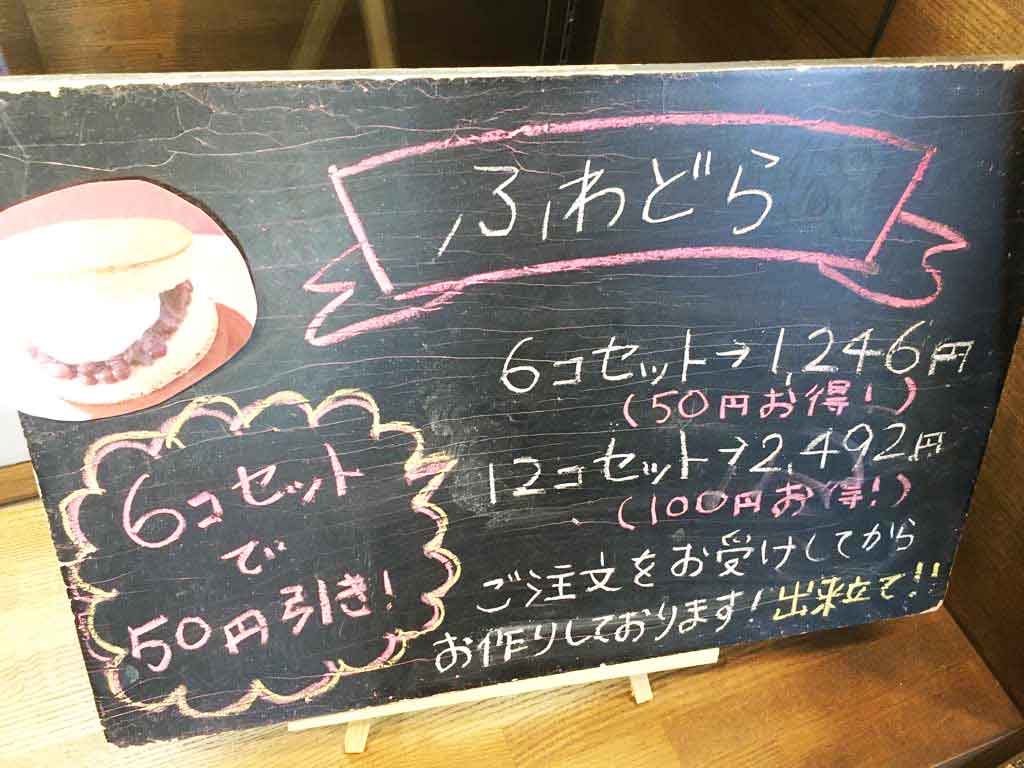 ふわどら
6コセット→1,246円
(50円お得!)
12コセット→2,492円
(100円お得!)
ご注文をお受けしてから
お作りしております!出来立て!!
6コセット
で
50円引き!